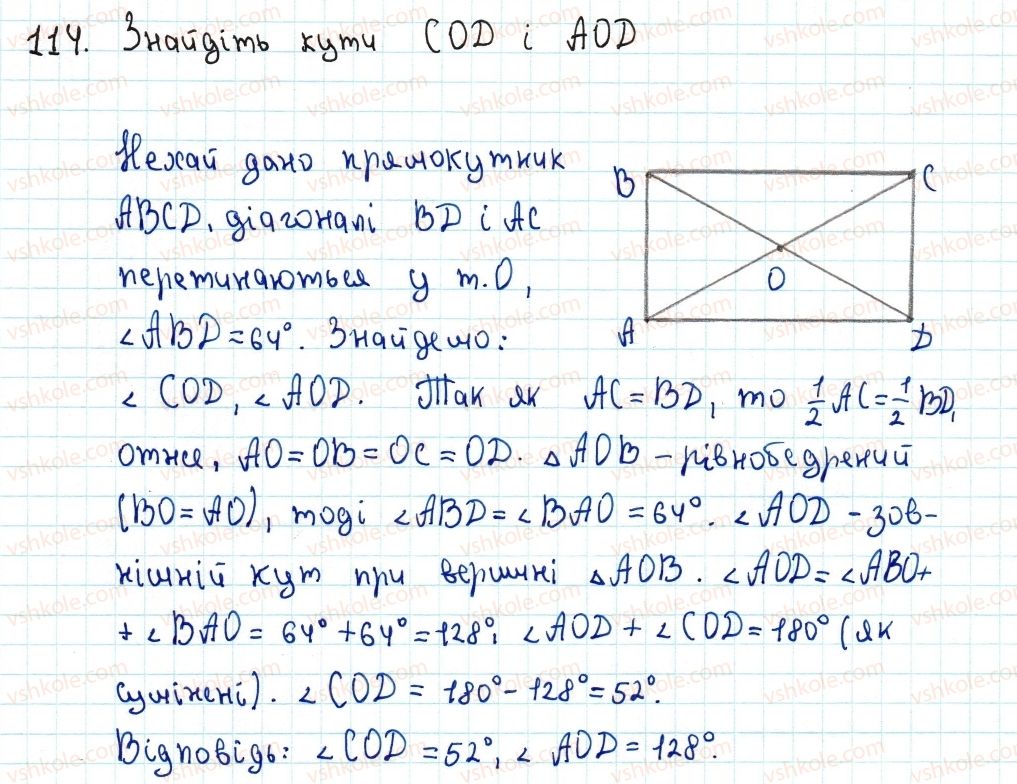 114. Знайдіть кути COD і AOD
Нехай дано прямокутник
ABCD, діагоналі BD і AC
перетинаються у т.О,
∠ABD=64°. Знайдемо:
∠ COD, ∠AOD. Так як AC=BD, то 1/2 AC=1/2 BD,
отже, AO=OB=OC=OD. △AOB – рівнобедрений
(BO=AO), тоді ∠ABD=∠BAO=64°. ∠AOD – зов-
нішній кут при вершині △AOB. ∠AOD=∠ABO+
+∠BAO=64°+64°=128°; ∠AOD+∠COD=180° (як
суміжні). ∠COD=180°-128°=52°.
Відповідь: ∠COD=52°, ∠AOD=128°.
B
C
O
A
D
vshkole.com